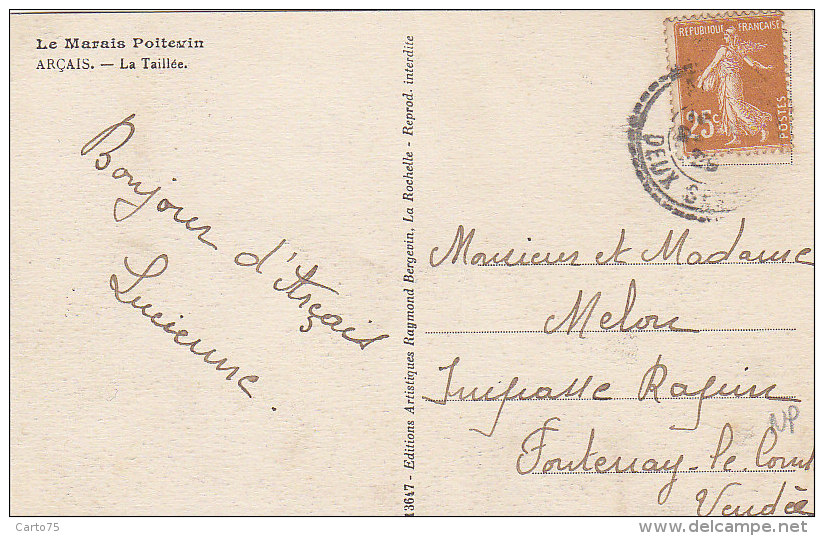 Le Marais Poitevin
ARÇAIS. — La Taillée.
Bonjour d'Arçais
Lucienne.
13647 - Editions Artistiques Raymond Bergevin, La Rochelle - Reprod. interdite
REPUBLIQUE FRANÇAISE
25c
POSTES
DEUX
Monsieur et Madame
Melon
Impasse
NP
Fontenay-le Comt
Vendée
Carto75
www.delcampe.net